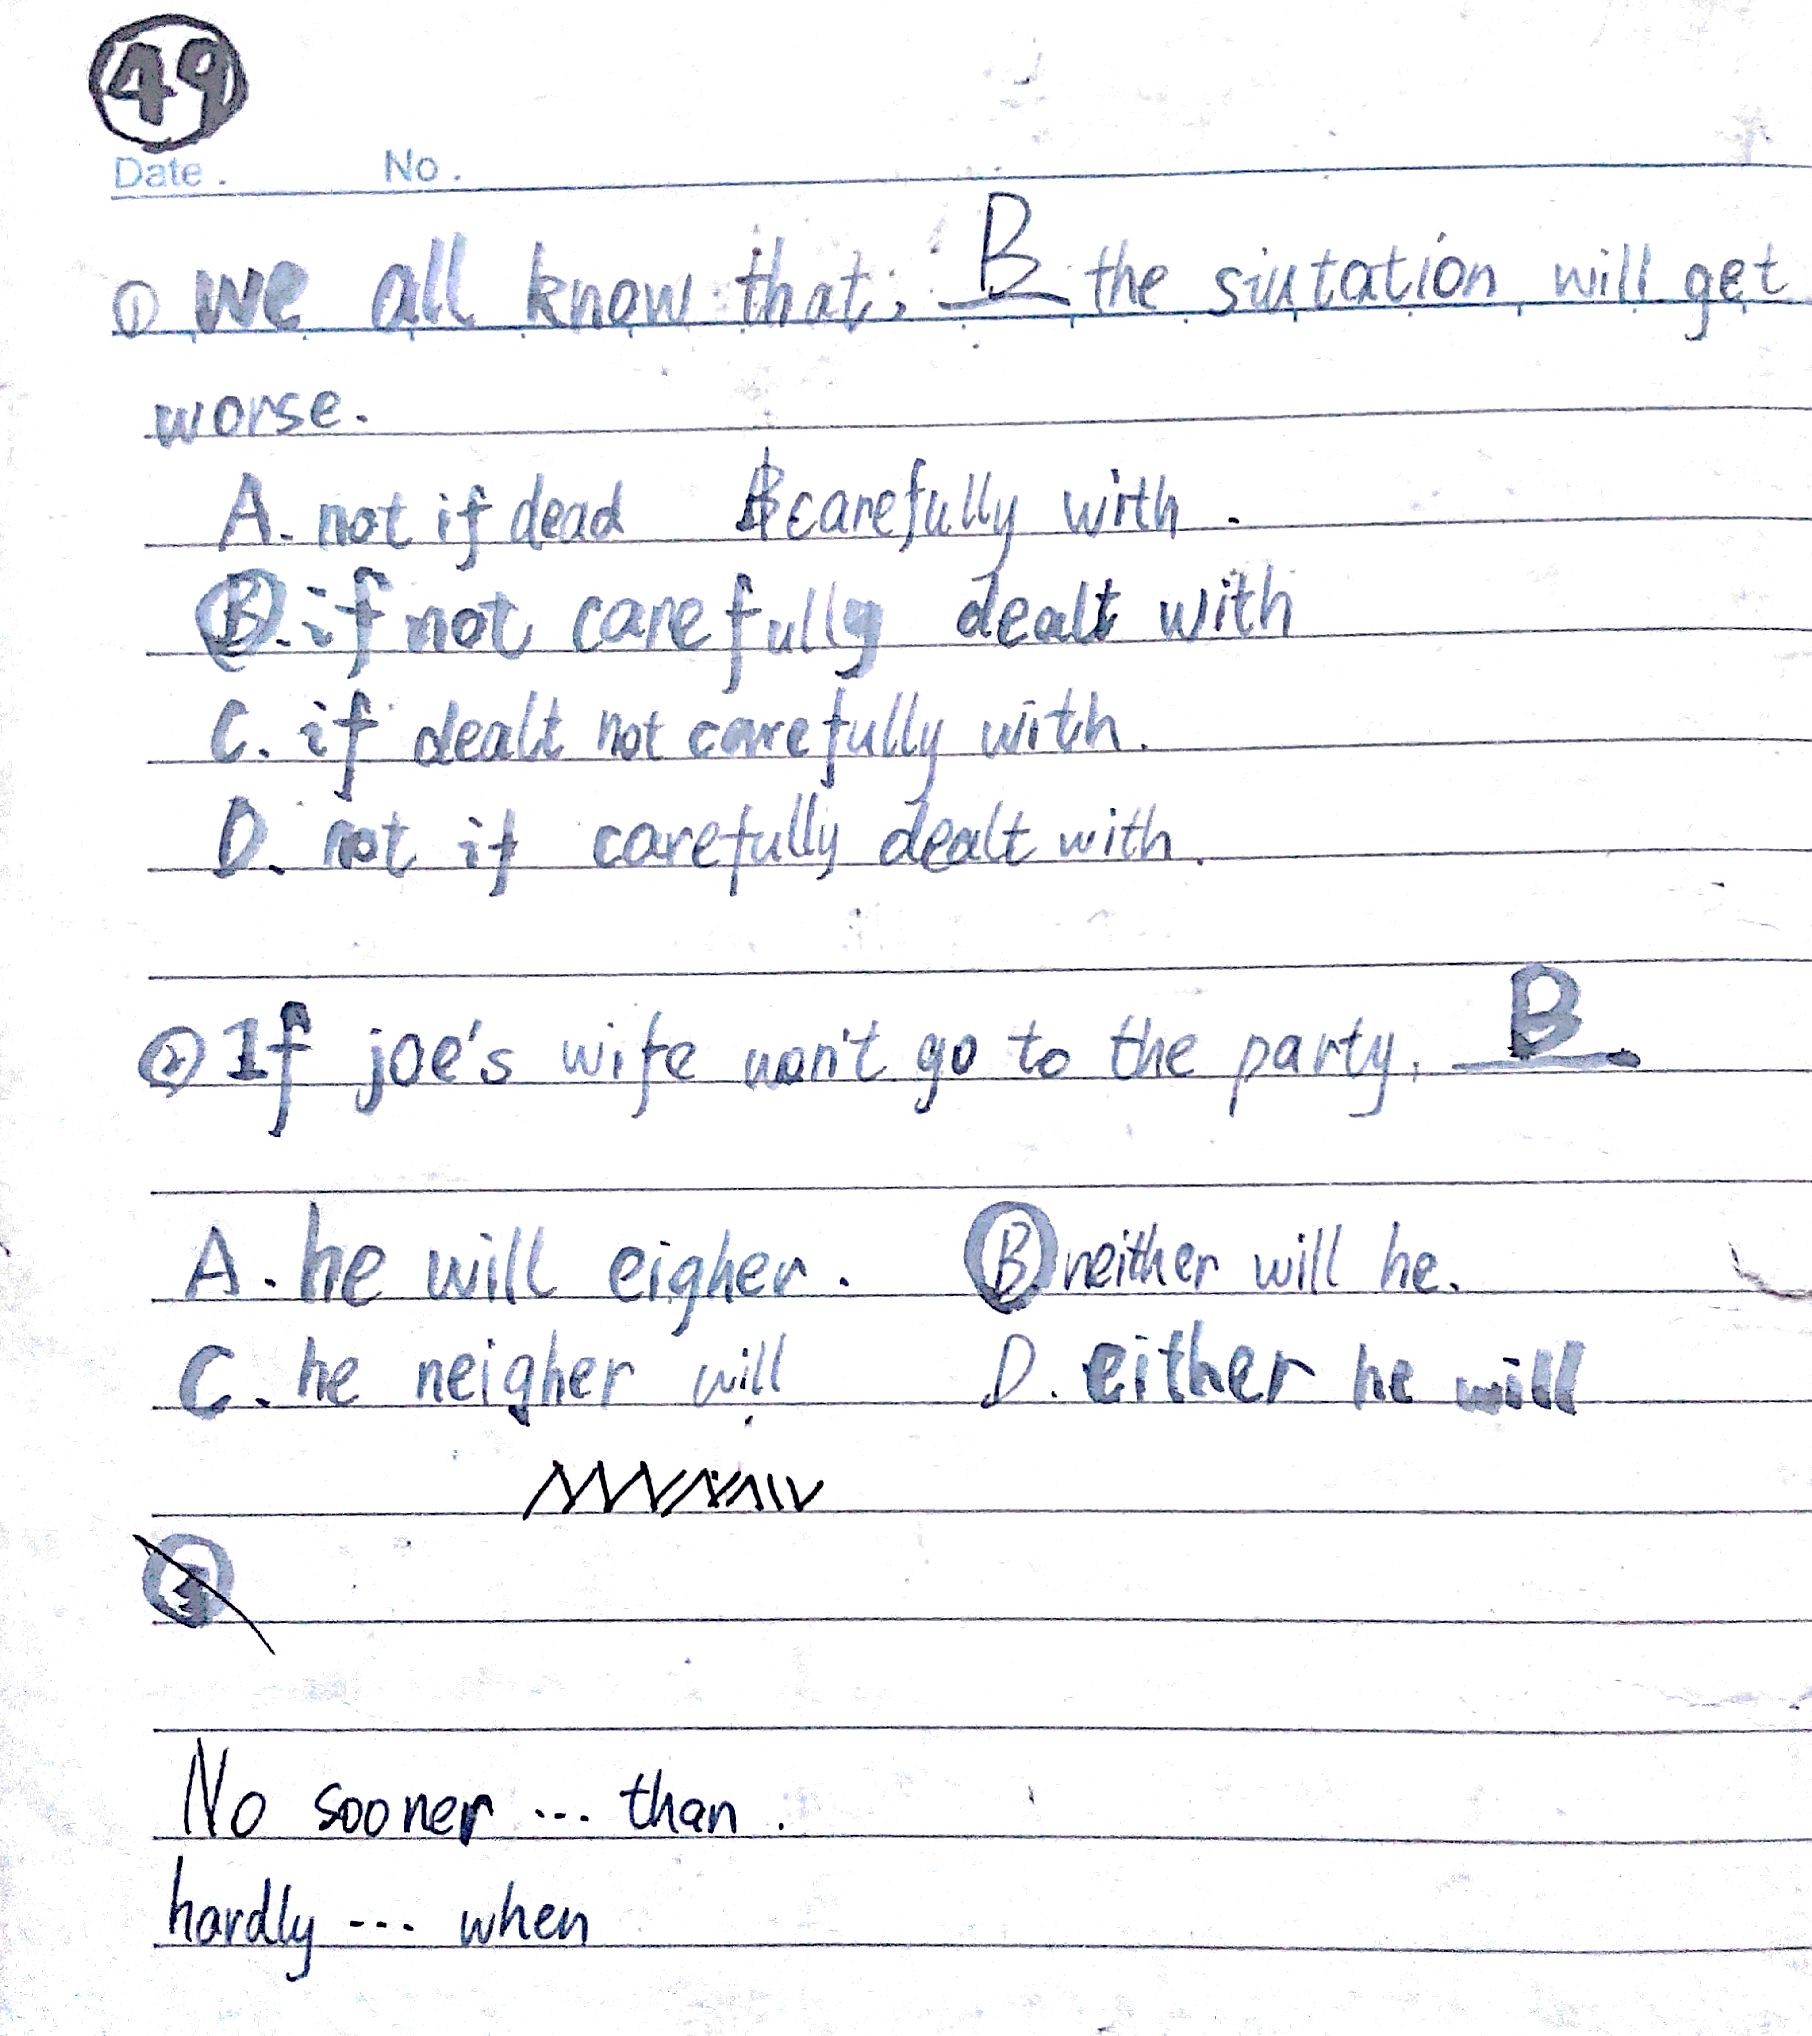 49
Date. No.
① we all know that, B the siutation will get
worse.
A. not if dead carefully with.
B. if not carefully dealt with
C. if dealt not carefully with.
D. not if carefully dealt with.
② If joe's wife won't go to the party, B.
A. he will eigher. B neither will he.
C. he neigher will D. either he will
No sooner ... than.
hardly ... when